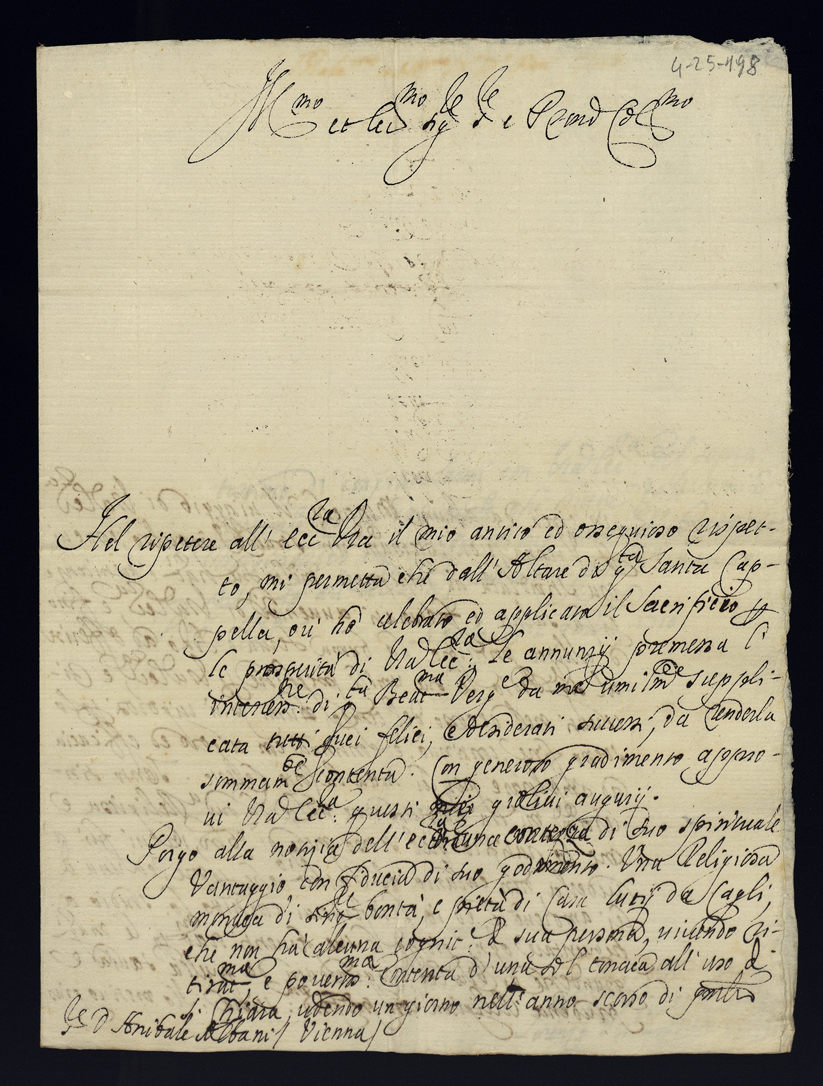 4-25-198
Ill.mo et Ecc.mo Sig.re S.re e Pron Col.mo
Nel ripetere all' Ecc.za V̄ra il mio antico ed ossequioso rispet-
to, mi permetta che dall'Altare di q.ta Santa Cap-
pella, ov' hò celebrato ed applicato il Sacrificio p
le prosperità di V̄ra Ecc.za: le annunzij premessa l'
interces.ne di q.ta Beat.ma Verg.e da me umilm.te suppli-
cata tutti quei felici, e desiderati successi, da renderla
sommam.te contenta. Con generoso gradimento appro-
vi V̄ra Ecc.za questi giolivi augurij.
Porgo alla notizia dell' Ecc.za una contezza di suo spirituale
Vantaggio con fiducia di suo godimento. Una Religiosa
monaca di bontà, e pietà di Casa Lucij da Cagli,
che non hà alcuna cogniz.e di sua persona, vivendo ri-
tirat.ma, e poveris.ma contenta d'una sol tonaca all'uso di
S. Chiara, udendo un giorno nell'anno scorso di
S.r D Anibale Albani / Vienna /